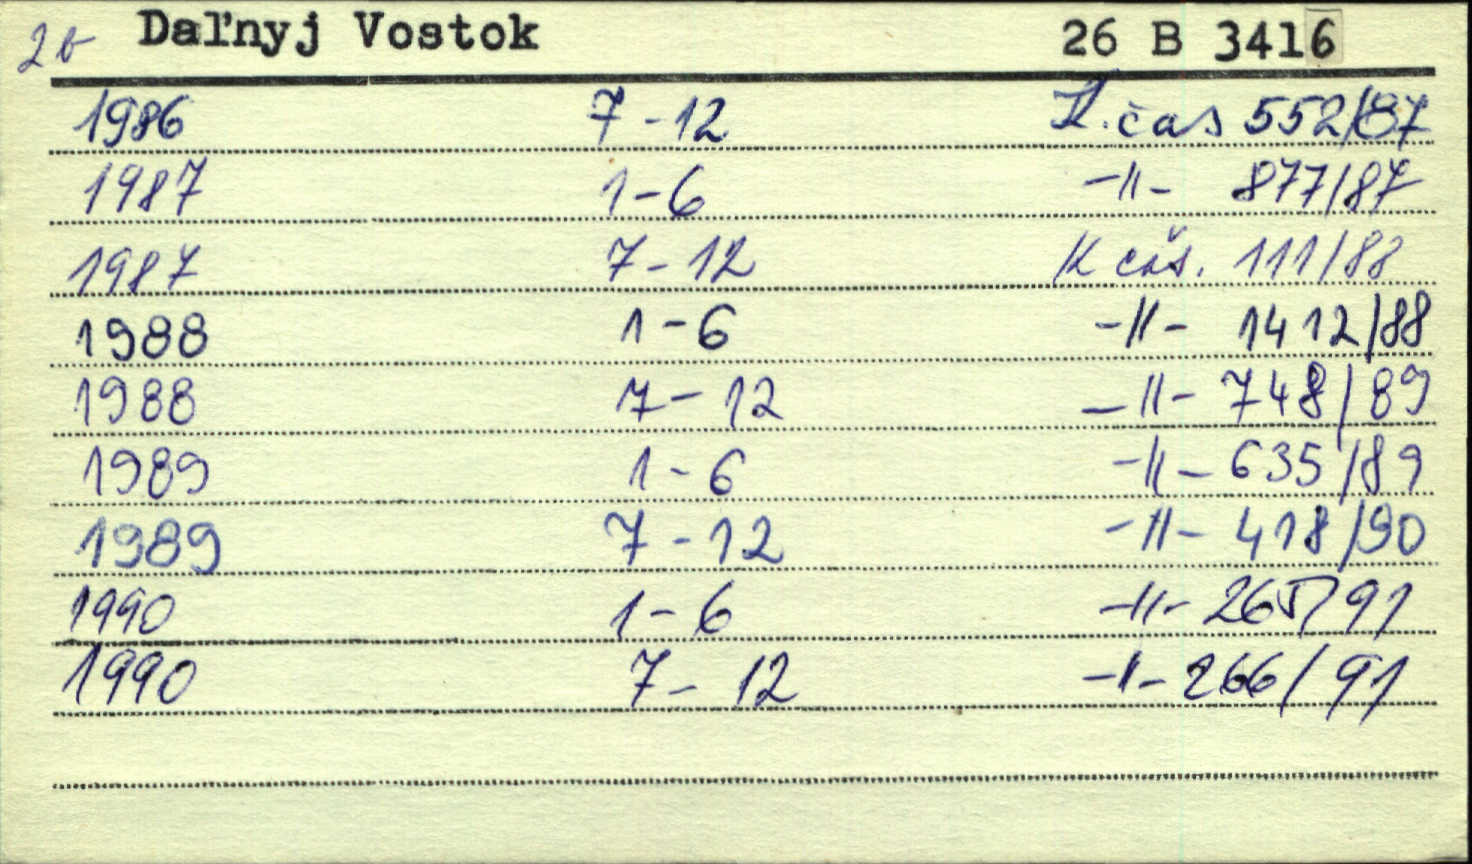 2b Daľnyj Vostok 26 B 3416
1986 7-12 K. čas 552/87
1987 1-6 -11- 877/87
1987 7-12 K čas. 111/88
1988 1-6 -11- 1412/88
1988 7-12 -11- 748/89
1989 1-6 -11- 635/89
1989 7-12 -11- 418/90
1990 1-6 -11- 265/91
1990 7-12 -11- 266/91